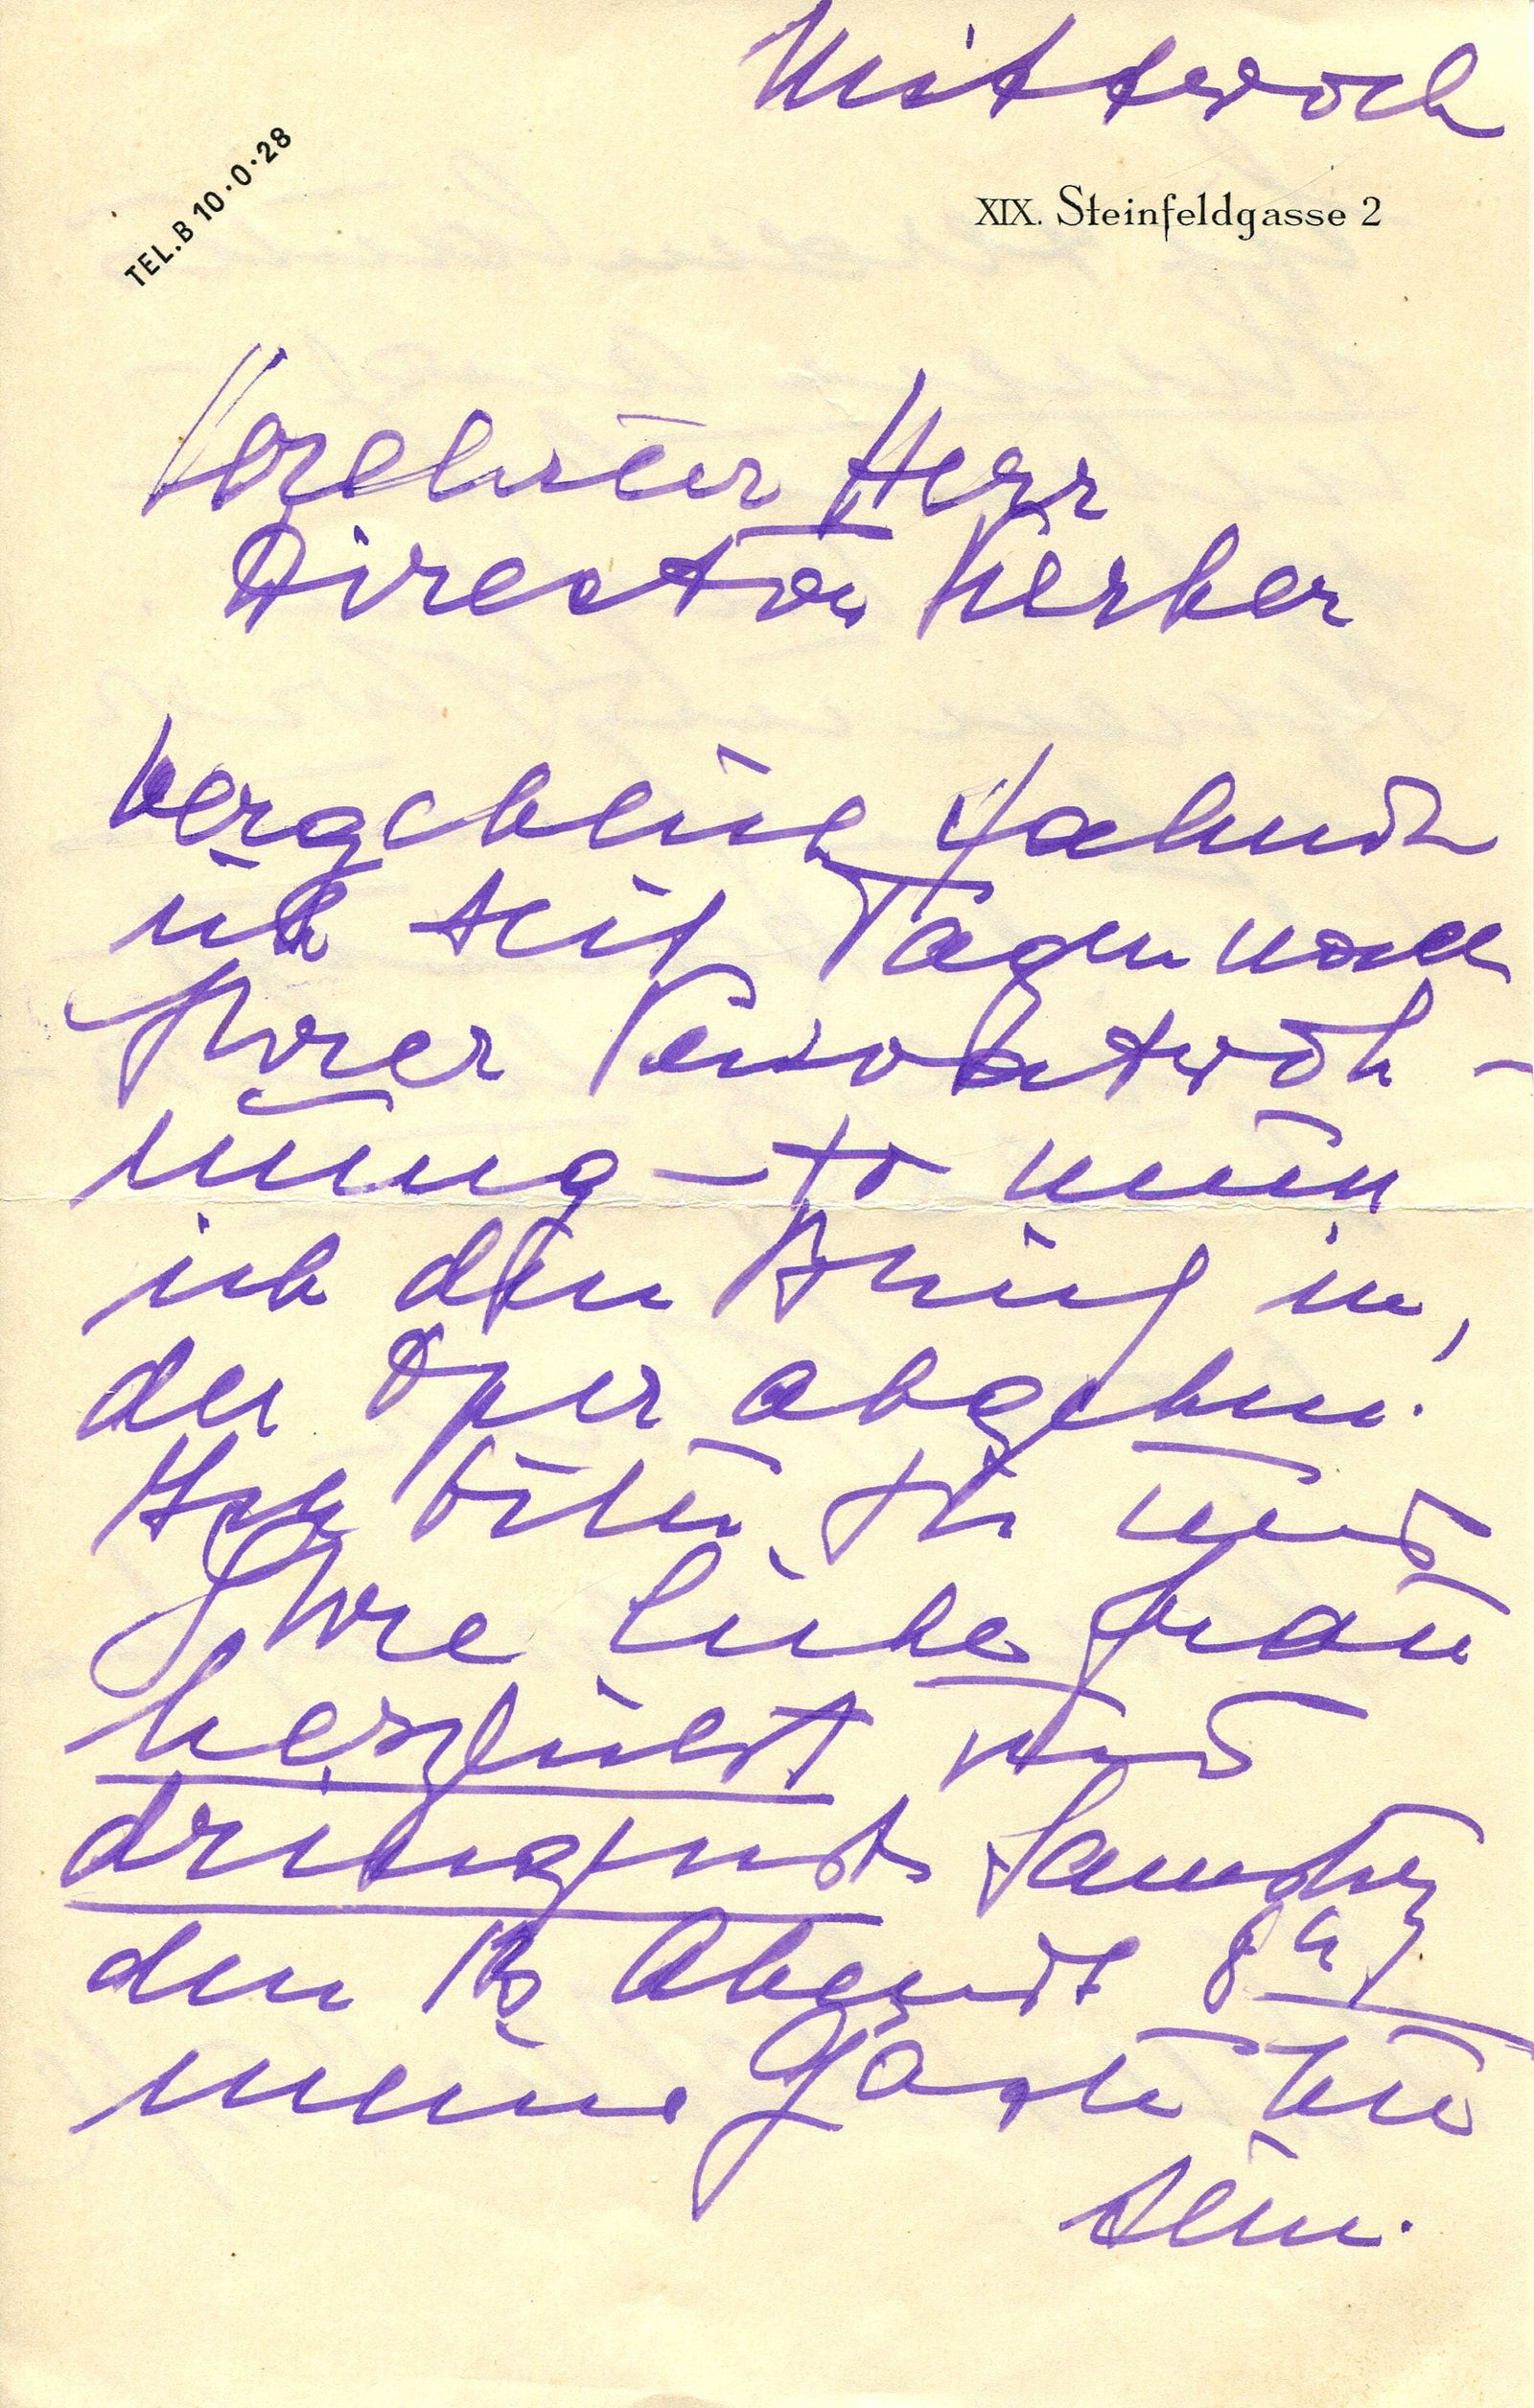 Mittwoch
TEL. B 10·0·28
XIX. Steinfeldgasse 2
Verehrter Herr
Direktor Kerber
Vergeblich fahnde
ich seit Tagen nach
Ihrer Privatwoh-
nung – so muss
ich den Brief in
der Oper abgeben.
Ich bitte Sie und
Ihre liebe Frau
herzlichst und
dringendst Samstag
den 13 Abends 8h
meine Gäste zu
sein.